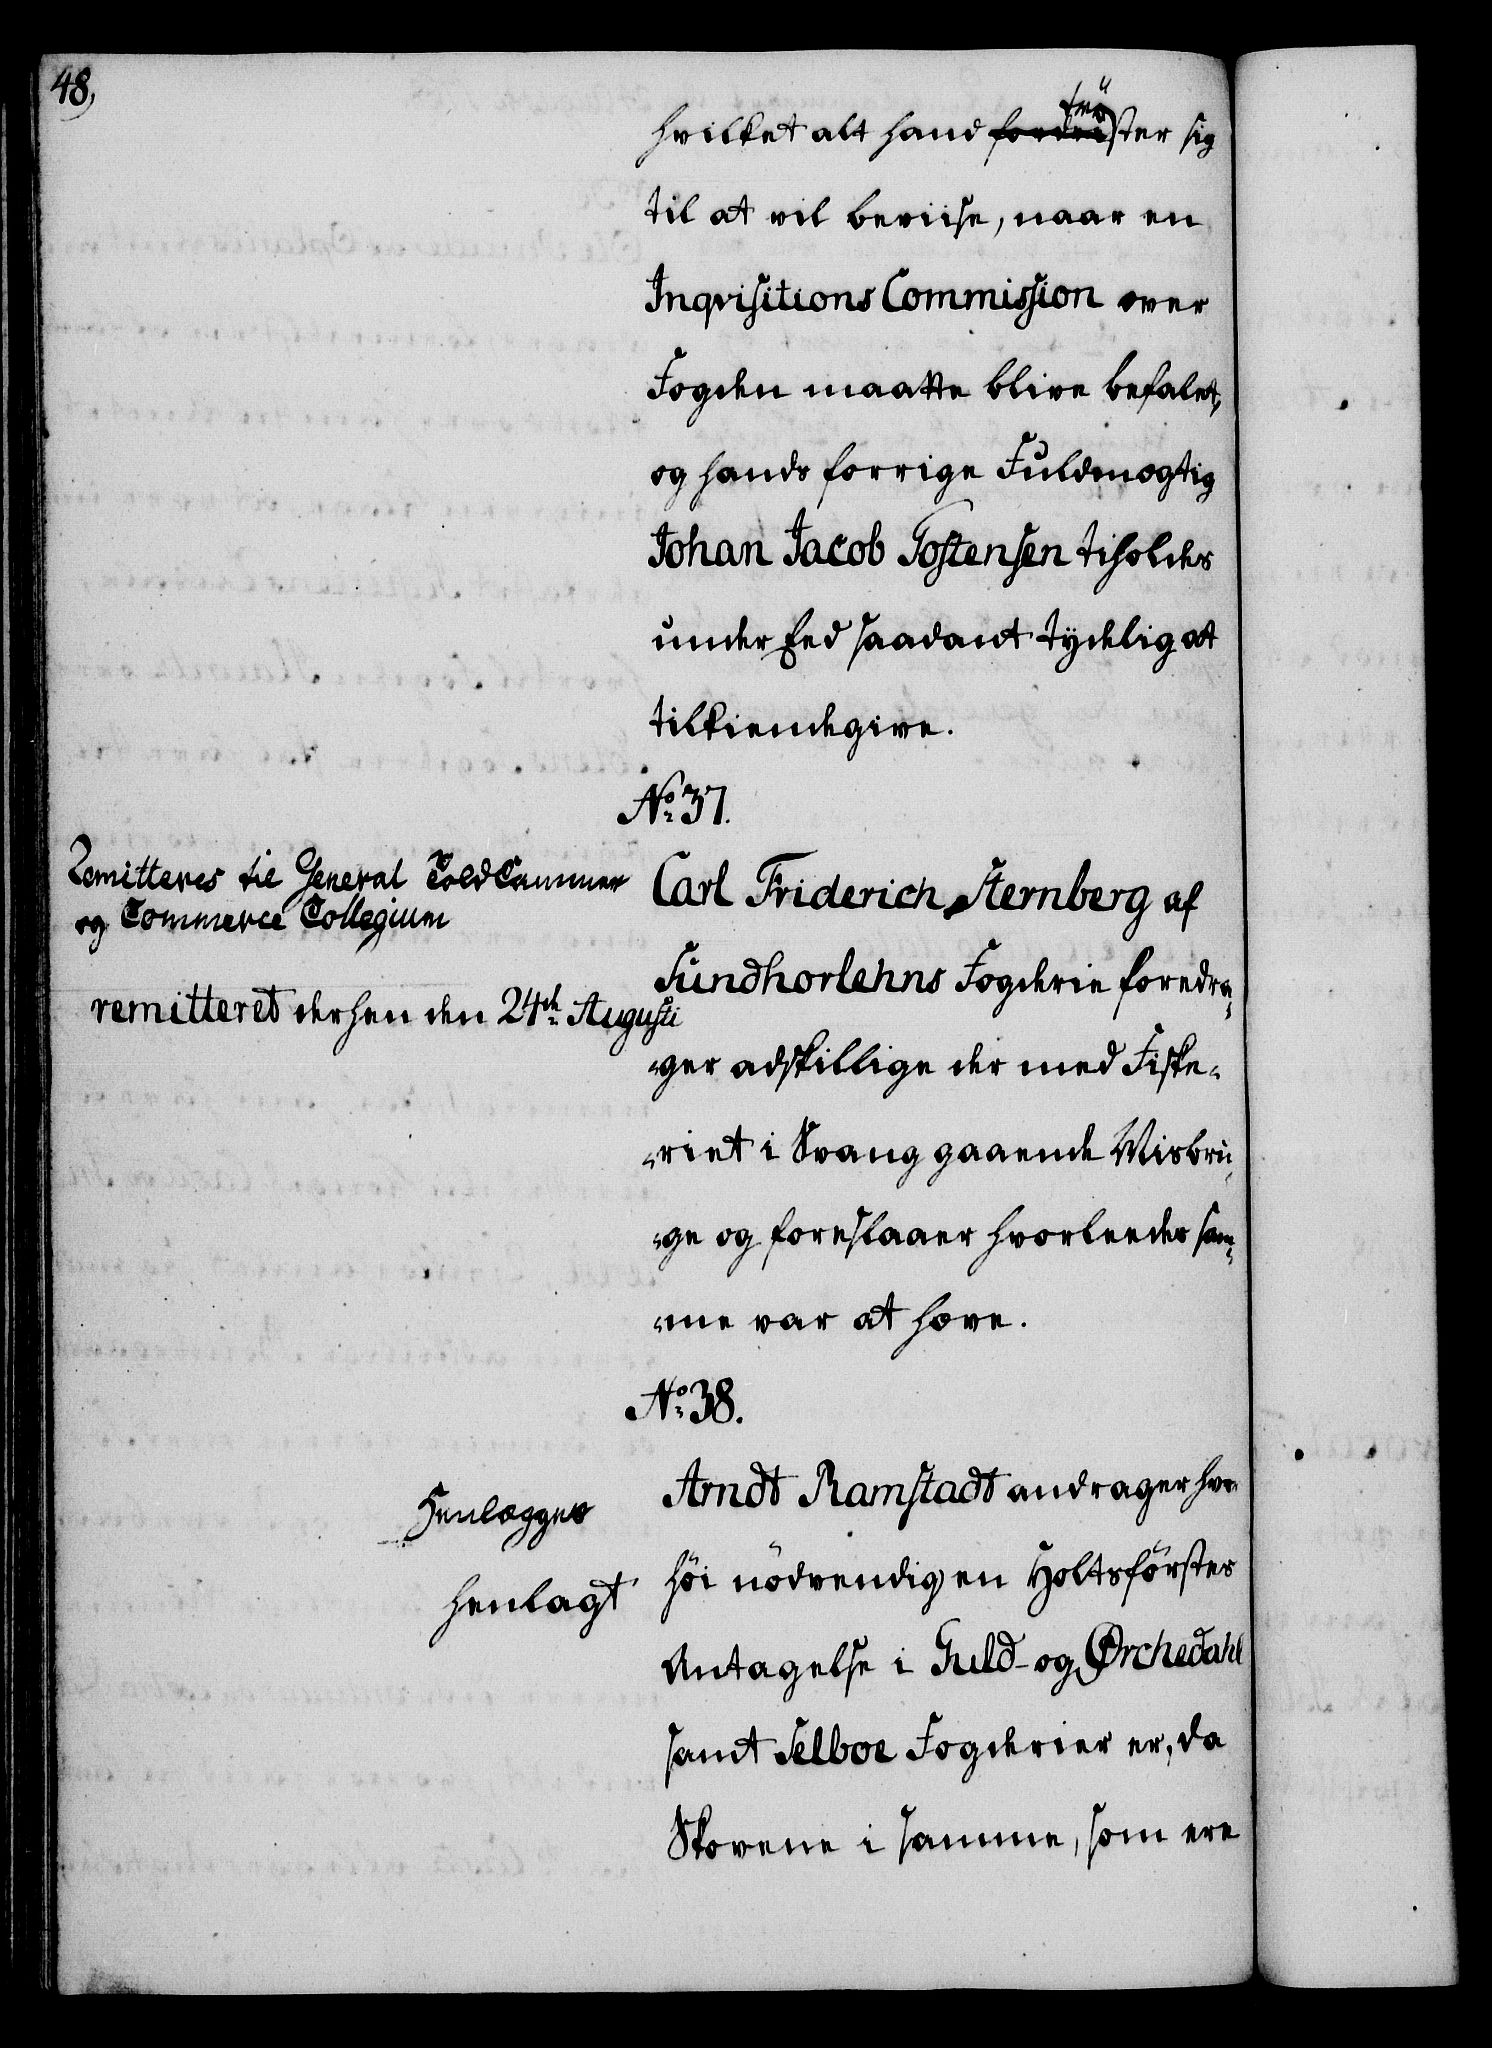 48,
hvilket alt hand fordrister sig
trö
til at vil beviise, naar en
Inqvisitions Commission over
Fogden maatte blive befalet,
og hands forrige Fuldmægtig
Johan Jacob Tostensen tiholdes
under Eed saadant tydeligst
tilkiendegive.
No 37.
Remitteres til General Told Cammer
og Commerce Collegium
remitteret derhen den 24de Augusti
Carl Friderich Sternberg af
Sundhorlehns Fogderie foredra-
-ger adskillige der med Fiske-
-riet i Svang gaaende Misbru-
-ge og foreslaaer hvorleedes sam-
-me var at hæve.
No 38.
Henlægges
henlagt
Arndt Ramstadt andrager hvor
höi nödvendig en Holtsförsters
Antagelse i Guld- og Ørchedahl
samt Selboe Fogderier er, da
Skovene i samme, som ere